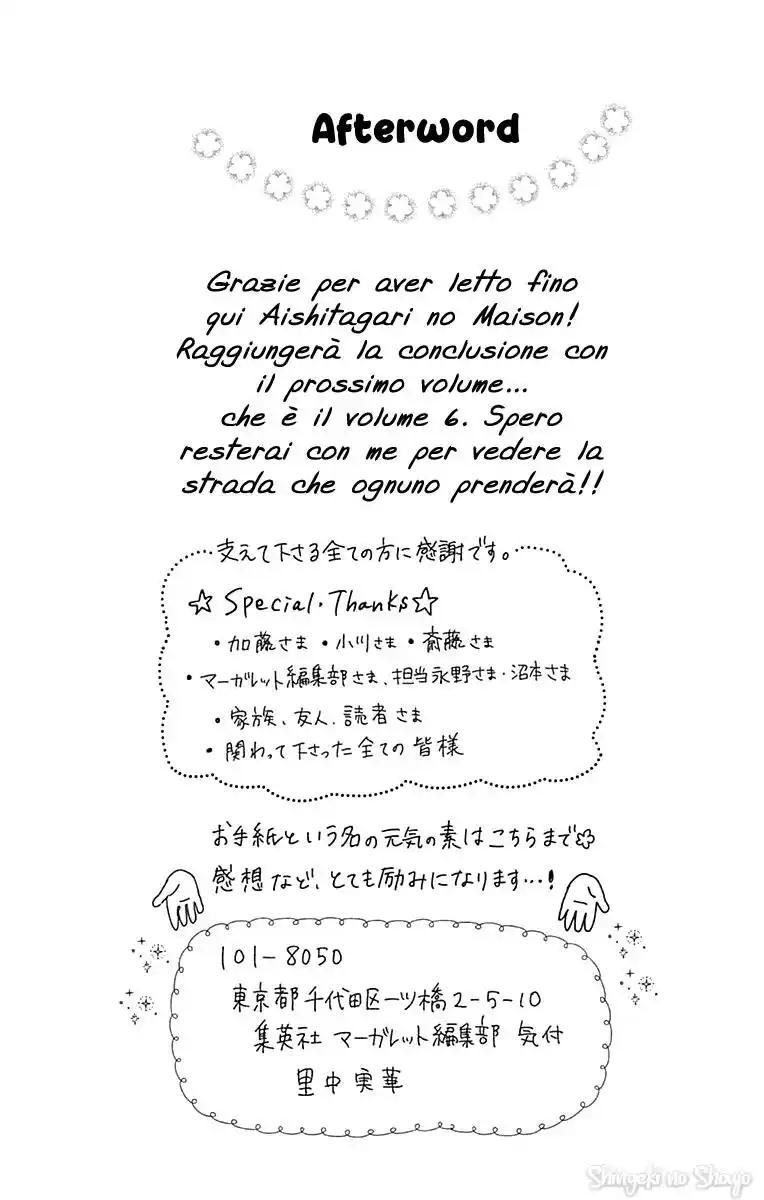 Afterword
Grazie per aver letto fino
qui Aishitagari no Maison!
Raggiungerà la conclusione con
il prossimo volume...
che è il volume 6. Spero
resterai con me per vedere la
strada che ognuno prenderà!!
支えて下さる全ての方に感謝です。
☆ Special・Thanks☆
・加藤さま ・小川さま ・斎藤さま
・マーガレット編集部さま、担当永野さま・沼本さま
・家族、友人、読者さま
・関わって下さった全ての皆様
お手紙という名の元気の素はこちらまで
感想など、とても励みになります…!
101-8050
東京都千代田区一ツ橋2-5-10
集英社 マーガレット編集部 気付
里中実華
Shingeki no Shoujo